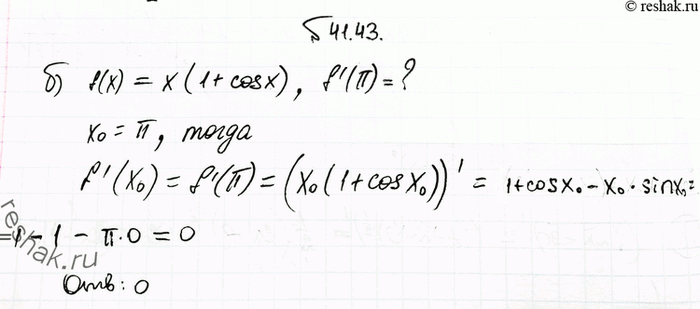 © reshak.ru
№ 41.43.
б) f(x) = x(1+cosx), f'(π) = ?
x₀ = π, тогда
f'(x₀) = f'(π) = (x₀(1+cosx₀))' = 1+cosx₀ - x₀ · sinx₀ =
= 1 - 1 - π·0 = 0
Отв: 0
reshak.ru